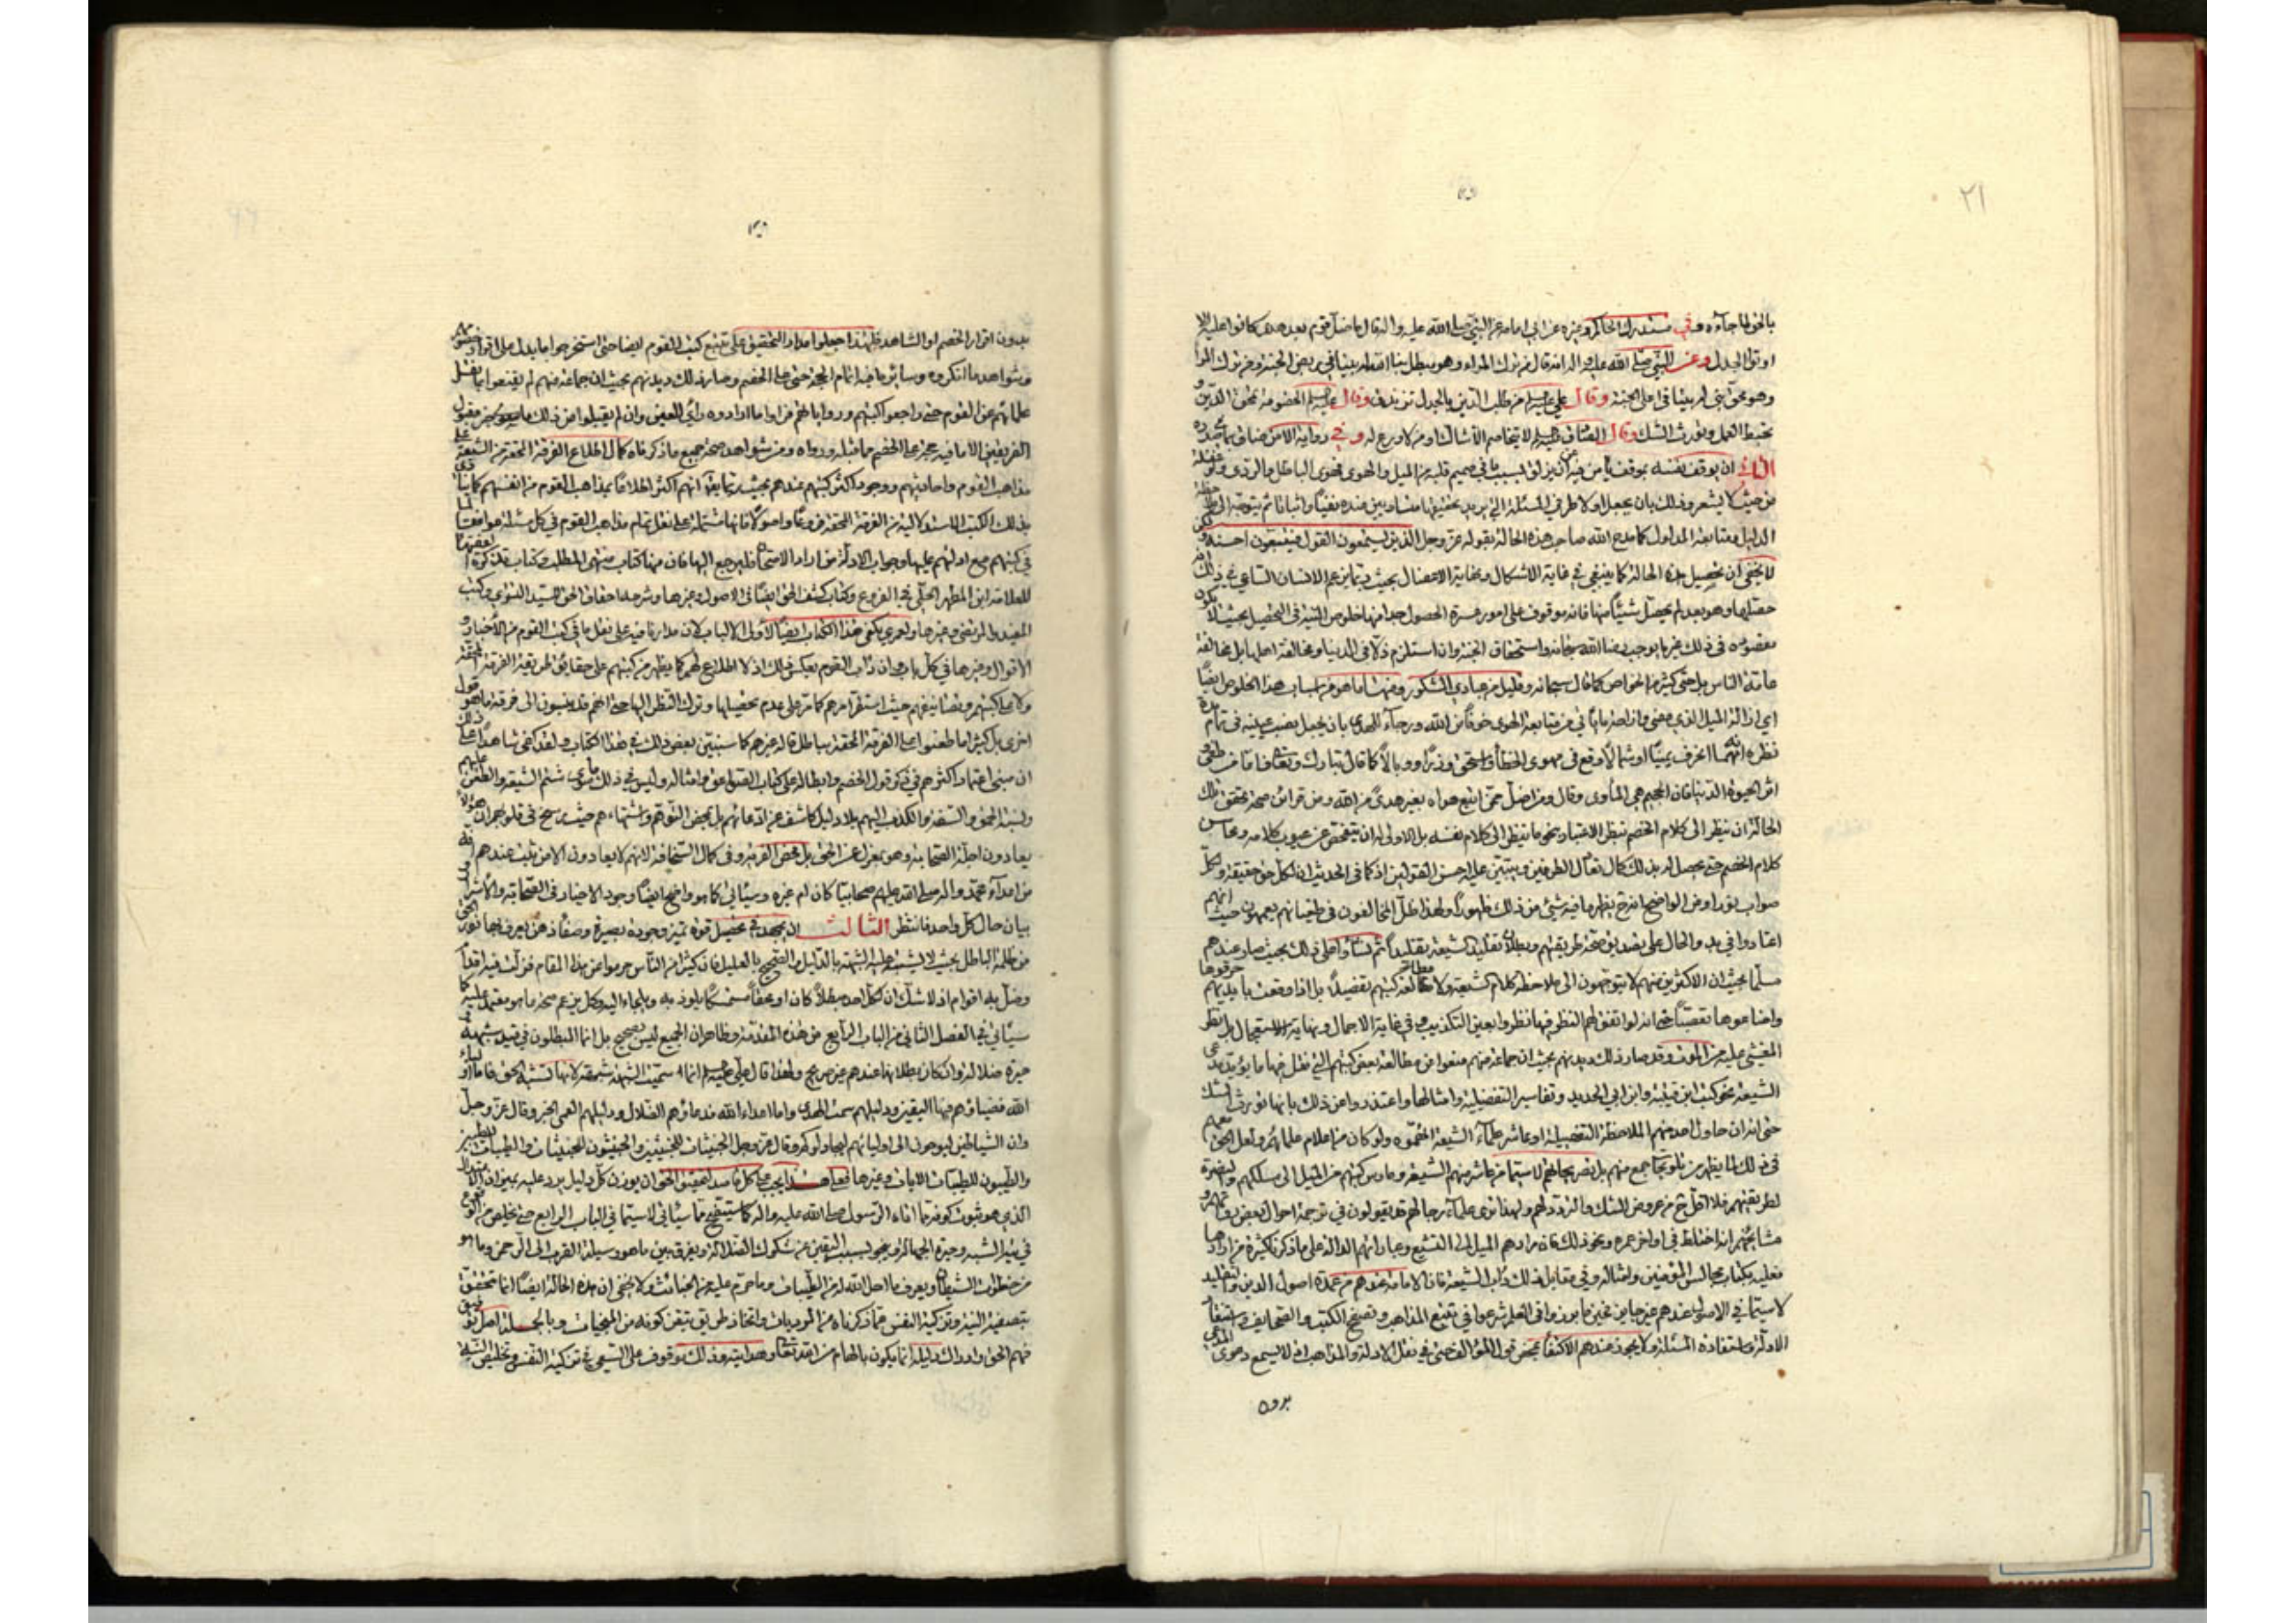 ٢١
بالحق لما جاءه وفي مستدرك الحاكم وغيره عن ابي امامة عن النبي صلى الله عليه واله قال ما ضل قوم بعد هدى كانوا عليه الا
اوتوا الجدل وعن النبي صلى الله عليه واله انه قال من ترك المراء وهو مبطل بنا الله له بيتا في ربض الجنة ومن ترك المراء
وهو محق بني له بيتا في اعلى الجنة وقال علي عليه السلام من طلب الدين بالجدل تزندق وقال عليه السلام الخصومة تمحق الدين و
تحبط العمل وتورث الشك وقال الصادق عليه السلام لا يخاصم الا شاك او من لا ورع له وفي رواية الا من ضاق بما في صدره
ان يوقف نفسه بموقف يأمن فيه ان يزلق بسبب ما في صميم قلبه من الميل والهوى فهوى الباطل والردى ولو غفلة
من حيث لا يشعر وذلك بان يجعل اولا طرفي المسئلة التي يريد تحقيقها متساويين عنده نفيا واثباتا ثم يتوجه الى ملاحظة
الدليل ومتابعة المدلول كما مدح الله صاحب هذه الحالة بقوله عز وجل الذين يستمعون القول فيتبعون احسنه ولكن
لا يخفى ان تحصيل هذه الحالة كما ينبغي في غاية الاشكال ونهاية الاعضال بحيث ربما يزعم الانسان الساعي في ذلك انه
حصلها وهو بعد لم يحصل شيئا منها فانه موقوف على امور عسرة الحصول جدا منها خلوص النية في التحصيل بحيث لا يكون
مقصوده في ذلك غير ما يوجب رضا الله سبحانه واستحقاق الجنة وان استلزم ذلا في الدنيا ومخالفة اهلها بل مخالفة
عامة الناس بل حتى كثير من الخواص كما قال سبحانه وقليل من عبادي الشكور ومنها ما هو من اسباب هذا الخلوص ايضا
اي ازالة الميل الذي مضى وازاحة ما يأتي من متابعة الهوى خوفا من الله ورجاء للهدى بان يجعل نصب عينيه في تمام مدة
نظره انه مهما انحرف يمينا او شمالا وقع في مهوى الخطأ واستحق وزرا ووبالا كما قال تبارك وتعالى فاما من طغى و
اثر الحيوة الدنيا فان الجحيم هي المأوى وقال ومن اضل ممن اتبع هواه بغير هدى من الله ومن قرائن صحة تحقق تلك
الحالة ان ينظر الى كلام الخصم بنظر الاعتبار نحو ما ينظر الى كلام نفسه بل الاولى له ان يتفحص عن عيوب كلامه ومحاسن
كلام الخصم حتى يحصل له بذلك كمال تعادل الطرفين ويتبين عليه احسن القولين اذ كما في الحديث ان لكل حق حقيقة ولكل
صواب نورا ومن الواضح انه ح يظهر ما فيه شيئ من ذلك ظهورا ولهذا ظل المخالفون في طغيانهم يعمهون حيث انهم
اعتادوا في بدو الحال على تصديق صحة طريقتهم وبطلان تقليد الشيعة تقليدا ثم نشأوا على ذلك بحيث صار عندهم
مسلما بحيث ان الاكثرين منهم لا يتوجهون الى ملاحظة كلام الشيعة ولا مطالعة كتبهم تفصيلا بل اذا وقعت بايديهم حرقوها
واضاعوها تعصبا حتى انه لو اتفق لهم النظر فيها نظروا بعين التكذيب وفي غاية الاجمال ونهاية الاستعجال بل نظر
المغشي عليه من الموت وقد صار ذلك ديدنهم بحيث ان جماعة منهم منعوا من مطالعة بعض كتبهم التي نقل فيها ما يؤيد مدعى
الشيعة نحو كتب ابن قتيبة وابن ابي الحديد وتفاسير التفضيلية وامثالها واعتذروا عن ذلك بانها تورث الشك
حتى انه ان حاول احد منهم الملاحظة التفصيلة او عاشر علماء الشيعة اتهموه ولو كان من اعلام علمائهم ولعل الحق معهم
في ذلك لما يظهر من تلويحا جمع منهم بل تصريحاتهم لا سيما من عاشر منهم الشيعة ومارس كتبهم من الميل الى مسلكهم والبصيرة
لطريقتهم فلا اقل ح من عروض الشك والتردد لهم ولهذا ترى علماء رجالهم قد يقولون في ترجمة احوال بعض ثقاتهم و
مشايخهم انه اختلط في اواخر عمره ونحو ذلك فان مرادهم الميل الى التشيع وعباراتهم الدالة على ما ذكرنا كثيرة من ارادها
فعليه بكتاب مجالس المؤمنين وامثاله وفي مقابل ذلك دأب الشيعة فان الامامة عندهم من عمدة اصول الدين والتقليد
لا سيما في الاصول عندهم غير جايز فحين ما برزوا في العلم شرعوا في تتبع المذاهب وتصفح الكتب والصحايف واستقصاء
الادلة واستفادة المسئلة ولا يجوز عندهم الاكتفا بمحض قول المؤالف حتى في نقل الادلة والمذاهب اذ لا يسمع دعوى المدعي
بدون
بدون اقرار الخصم او الشاهد فلهذا جعلوا مدار التحقيق على تتبع كتب القوم ايضا حتى استخرجوا ما يدل على اقوالهم
وشواهد ما انكروه وسائر ما فيه اتمام الحجة حتى على الخصم وصار ذلك ديدنهم بحيث ان جماعة منهم لم يقنعوا بما نقل
علمائهم عن القوم حتى راجعوا كتبهم ورواياتهم فراوا ما ارادوه رأي العين وان لم يقبلوا من ذلك ما سوى مقبول
الفريقين الا ما فيه حجة على الخصم مما قبله ورواه ومن شواهد صحة جميع ما ذكرناه كمال اطلاع الفرقة المحقة من الشيعة على
مذاهب القوم واحاديثهم ووجود اكثر كتبهم عندهم بحيث ربما يقال انهم اكثر اطلاعا بمذاهب القوم من انفسهم كما ينادي
بذلك الكتب الاستدلالية من الفرقة المحقة فروعا واصولا فانها مشتملة على نقل تمام مذاهب القوم في كل مسئلة موافقا لما
في كتبهم مع ادلتهم عليها وجواب الادلة من اراد الامتحان فليرجع اليها فان منها كتاب منتهى المطلب وكتاب تذكرة الفقهاء
للعلامة ابن المطهر الحلي في الفروع وكتاب كشف الحق ايضا في الاصول وغيرها وشرحه احقاق الحق للسيد التستري وكتب
المفيد والمرتضى وغيرها ولعمري يكفي هذا الكتاب ايضا لاولي الالباب لان مدارنا فيه على نقل ما في كتب القوم من الاخبار و
الاقوال وغيرها في كل باب مع ان دأب القوم بعكس ذلك اذ لا اطلاع لهم كما يظهر من كتبهم على حقايق طريقة الفرقة المحقة
ولا على كتبهم وتصانيفهم حيث استقر امرهم كما مر على عدم تحصيلها وترك النظر اليها حتى انهم قد ينسبون الى فرقة ما هو قول
اخرى بل كثيرا ما طعنوا على الفرقة المحقة بباطل قاله غيرهم كما سنبين بعض ذلك في هذا الكتاب ولقد كفى شاهدا على ذلك
ان مبنى اعتماد اكثرهم في ذكر قول الخصم وابطاله على كتاب الصواعق وامثاله وليس في ذلك ما سوى شتم الشيعة والطعن عليهم
ونسبة الحمق والسفه والكذب اليهم بلا دليل كاشف عن ادعائهم بل بمحض التوهم واشتهاءهم حيث رسخ في قلوبهم ان هؤلاء
يعادون اجلة الصحابة وهو بمعزل عن الحق بل محض الفرية وفي كمال السخافة لانهم لا يعادون الا من ثبت عندهم انه
من اعداء محمد واله صلى الله عليهم صحابيا كان ام غيره وسيأتي كما هو واضح ايضا وجود الاخيار في الصحابة والاشرار
بيان حال كل واحد فانتظر الثالث ان يجهد في تحصيل قوة تميز وجودة بصيرة وصفاء ذهن يعرف بها نور الحق
من ظلمة الباطل بحيث لا يشتبه عليه الشبهة بالدليل والصحيح بالعليل فان كثيرا من الناس حرموا عن هذا المقام فزلت فيه اقدام
وضل به اقوام اذ لا شك ان لكل احد مبطلا كان او محقا متمسكا يلوذ به ويلجاء اليه وكل يزعم صحة ما هو معتمد عليه كما
سيأتي في الفصل الثاني من الباب الرابع من هذه المقدمة وظاهر ان الجميع ليس بصحيح بل انما المبطلون في قيد شبهة
حيرة ضلالة وان كان بطلانها عندهم غير صريح ولهذا قال علي عليه السلام انما سميت الشبهة شبهة لانها تشبه الحق فاما اولياء
الله فضياؤهم فيها اليقين ودليلهم سمت الهدى واما اعداء الله فدعاؤهم الضلال ودليلهم العمى الخبر وقال عز وجل
وان الشياطين ليوحون الى اوليائهم ليجادلوكم وقال عز وجل الخبيثات للخبيثين والخبيثون للخبيثات والطيبات للطيبين
والطيبون للطيبات الايات وغيرها فعلى هذا يجب على كل قاصد لتحقيق الحق ان يوزن كل دليل يرد عليه بميزان
الذي هو ثبوت كونه مما اتاه الرسول صلى الله عليه واله كما سيتضح مما سيأتي لا سيما في الباب الرابع حتى يخلص من الوقوع
في تيه الشبه وحيرة الجهالة وينجو بسبب اليقين عن شكوك الضلالة ويفرق بين ما هو وسيلة القرب الى الرحمن وما هو
من خطوات الشيطان ويعرف ما احل الله له من الطيبات وما حرم عليه من الخبائث ولا يخفى ان هذه الحالة ايضا انما تتحقق
بتصفية النية وتزكية النفس مما ذكرناه من المرديات واتخاذ طريق تيقن كونه من المنجيات وبالجملة اصل توفيق
فهم الحق وادراك دليله انما يكون بالهام من الله تعالى وهدايته وذلك موقوف على السعي في تزكية النفس وتخليص النية